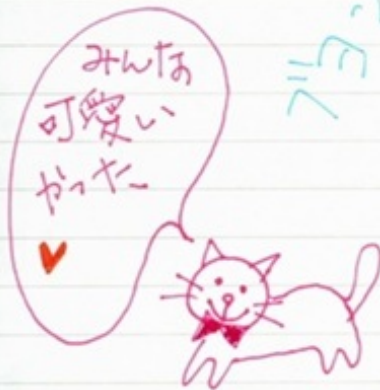 みんな
可愛い
かった